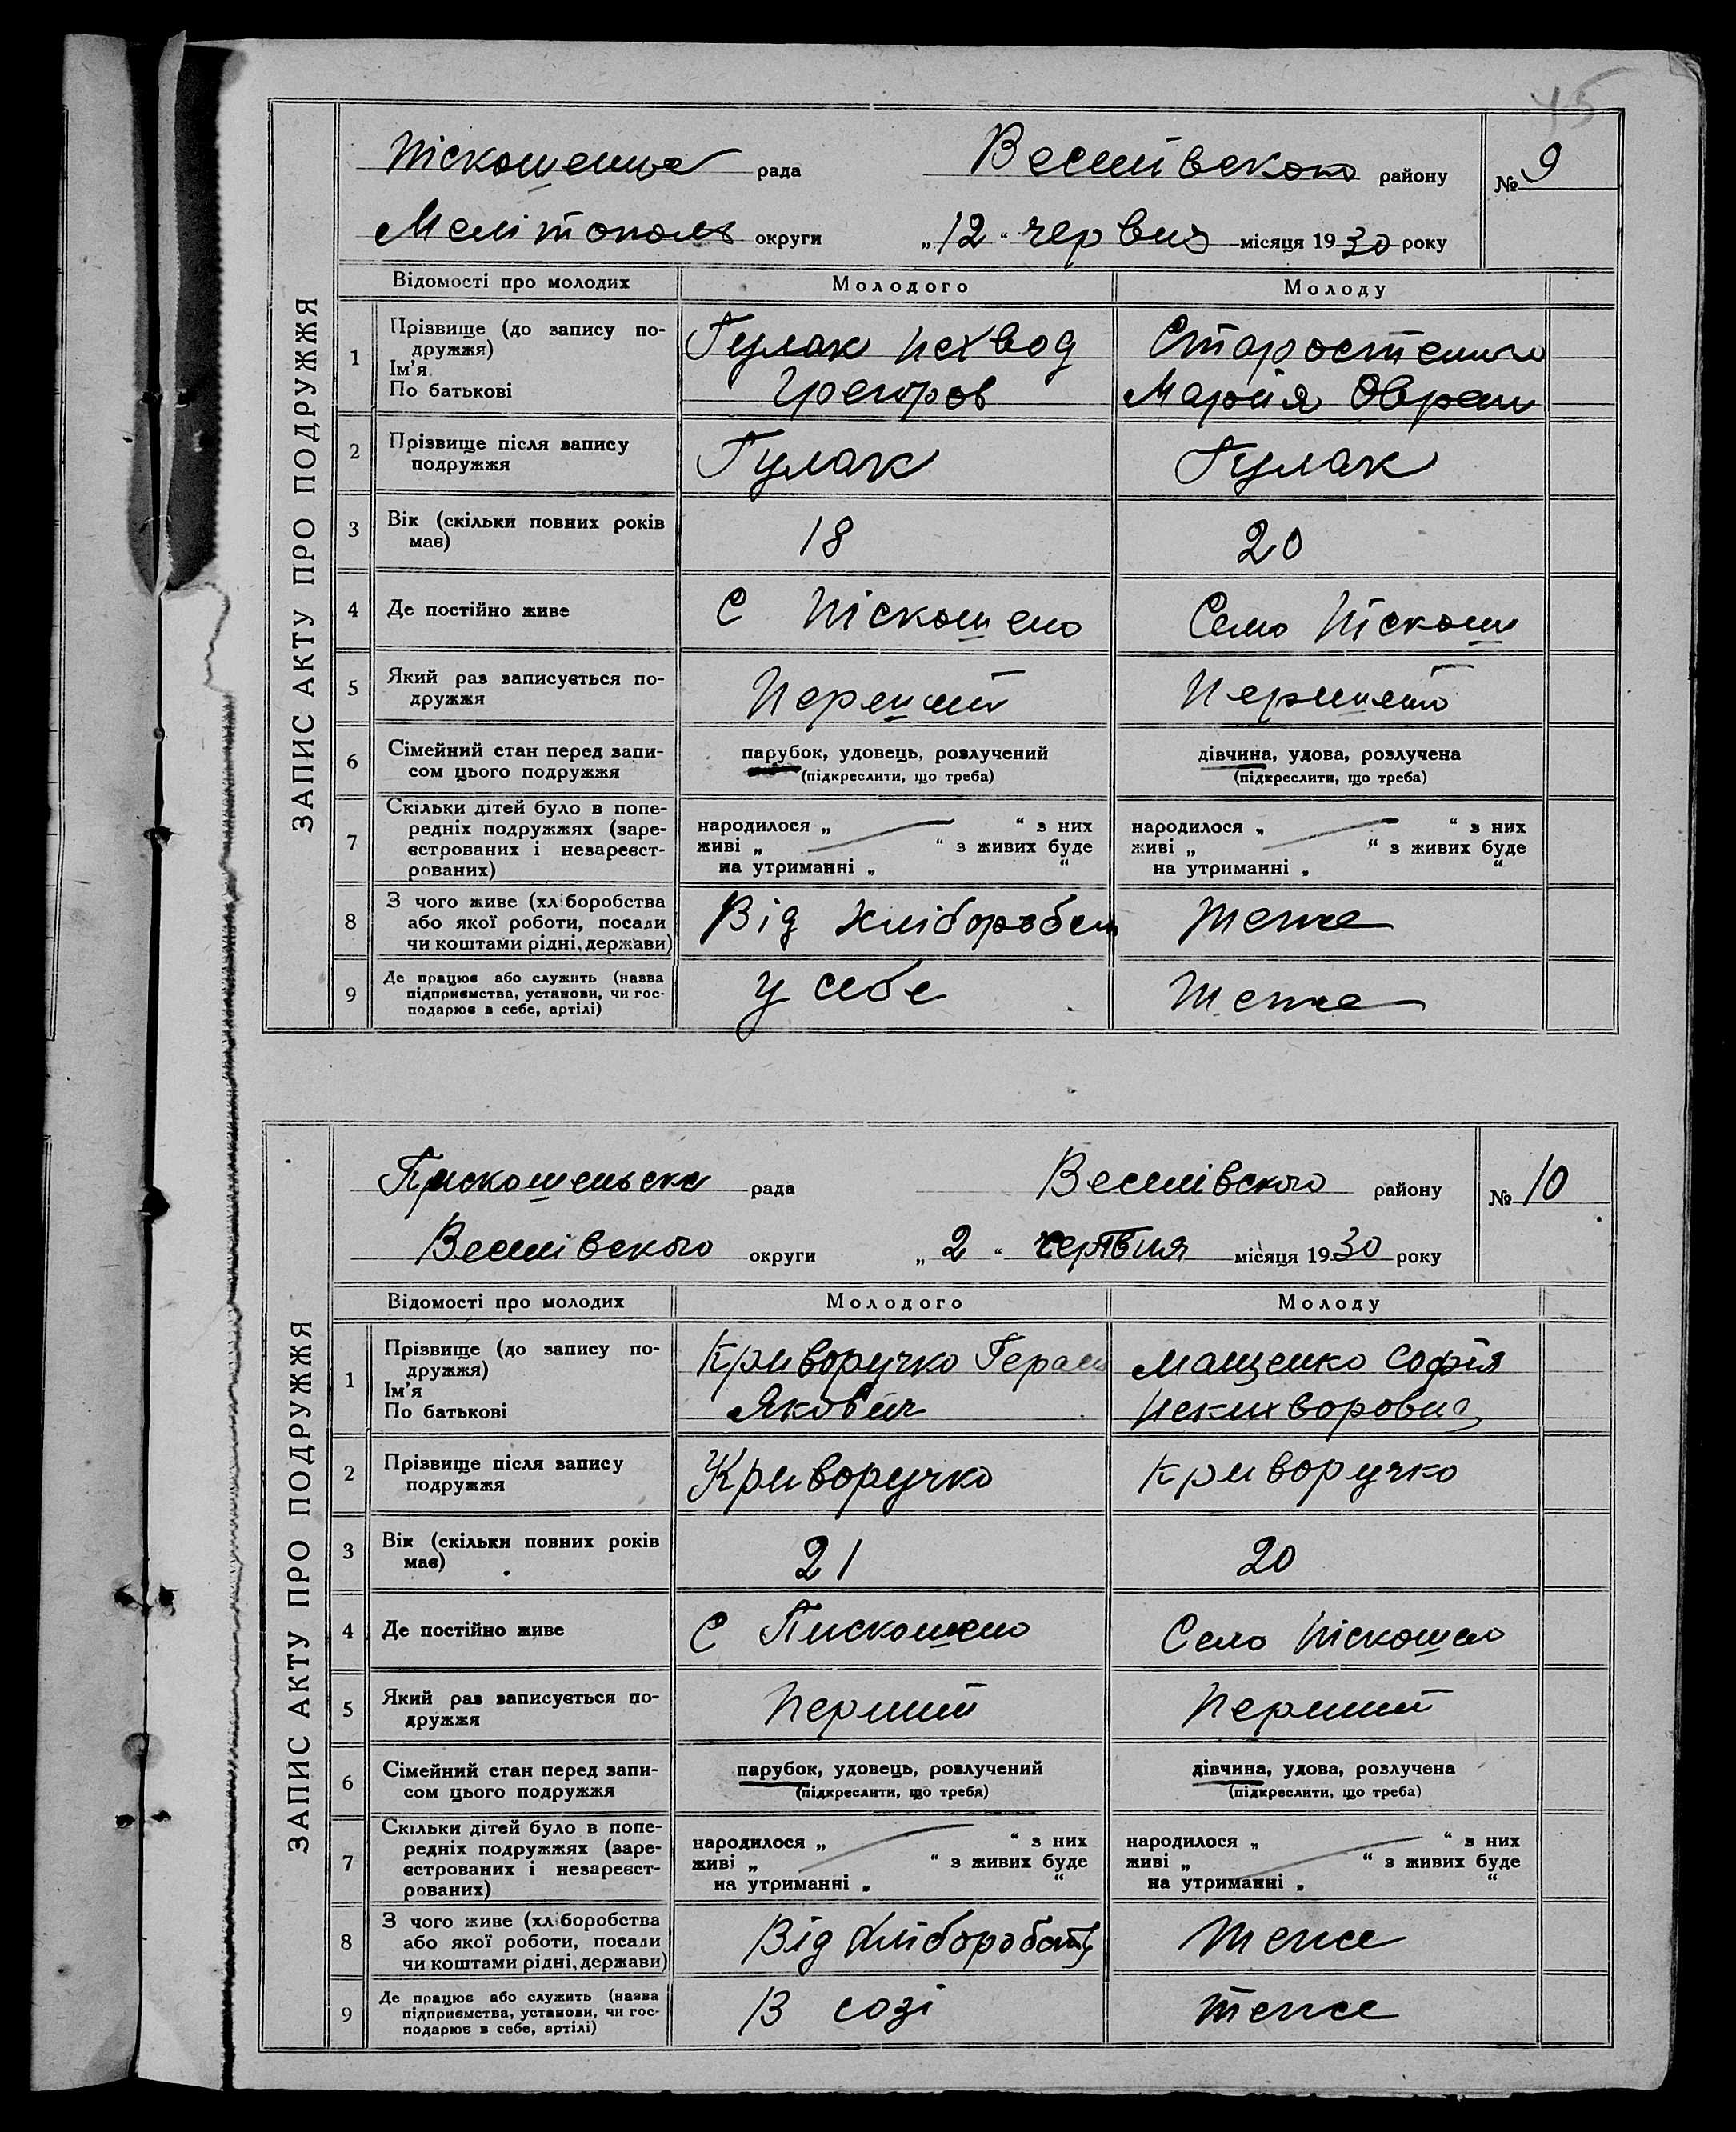 45
ЗАПИС АКТУ ПРО ПОДРУЖЖЯ
рада Веселівского району № 9
Мелітополь округи „12“ червня місяця 1930 року
Відомості про молодих Молодого Молоду
1 Прізвище (до запису по-
дружжя)
Ім'я
По батькові
Гулак
Марія
2 Прізвище після запису
подружжя
Гулак Гулак
3 Вік (скільки повних років
має)
18 20
4 Де постійно живе С Піскошено Село Піскош
5 Який раз записується по-
дружжя
Перший
6 Сімейний стан перед запи-
сом цього подружжя
парубок, удовець, розлучений
(підкреслити, що треба)
дівчина, удова, розлучена
(підкреслити, що треба)
7 Скільки дітей було в попе-
редніх подружжях (заре-
єстрованих і незареєст-
рованих)
народилося „ “ з них
живі „ “ з живих буде
на утриманні „ “
народилося „ “ з них
живі „ “ з живих буде
на утриманні „ “
8 З чого живе (хліборобства
або якої роботи, посади
чи коштами рідні, держави)
Від хліборобст Теже
9 Де працює або служить (назва
підприємства, установи, чи гос-
подарює в себе, артілі)
У себе Теже
ЗАПИС АКТУ ПРО ПОДРУЖЖЯ
рада Веселівского району № 10
Веселівского округи „2“ місяця 1930 року
Відомості про молодих Молодого Молоду
1 Прізвище (до запису по-
дружжя)
Ім'я
По батькові
Криворучко Герас
Якович
Мащенко Софія
2 Прізвище після запису
подружжя
Криворучко Криворучко
3 Вік (скільки повних років
має)
21 20
4 Де постійно живе С Пискошено Село Піскошено
5 Який раз записується по-
дружжя
Перший Перший
6 Сімейний стан перед запи-
сом цього подружжя
парубок, удовець, розлучений
(підкреслити, що треба)
дівчина, удова, розлучена
(підкреслити, що треба)
7 Скільки дітей було в попе-
редніх подружжях (заре-
єстрованих і незареєст-
рованих)
народилося „ “ з них
живі „ “ з живих буде
на утриманні „ “
народилося „ “ з них
живі „ “ з живих буде
на утриманні „ “
8 З чого живе (хліборобства
або якої роботи, посади
чи коштами рідні, держави)
Від хліборобств Теже
9 Де працює або служить (назва
підприємства, установи, чи гос-
подарює в себе, артілі)
В созі Теже